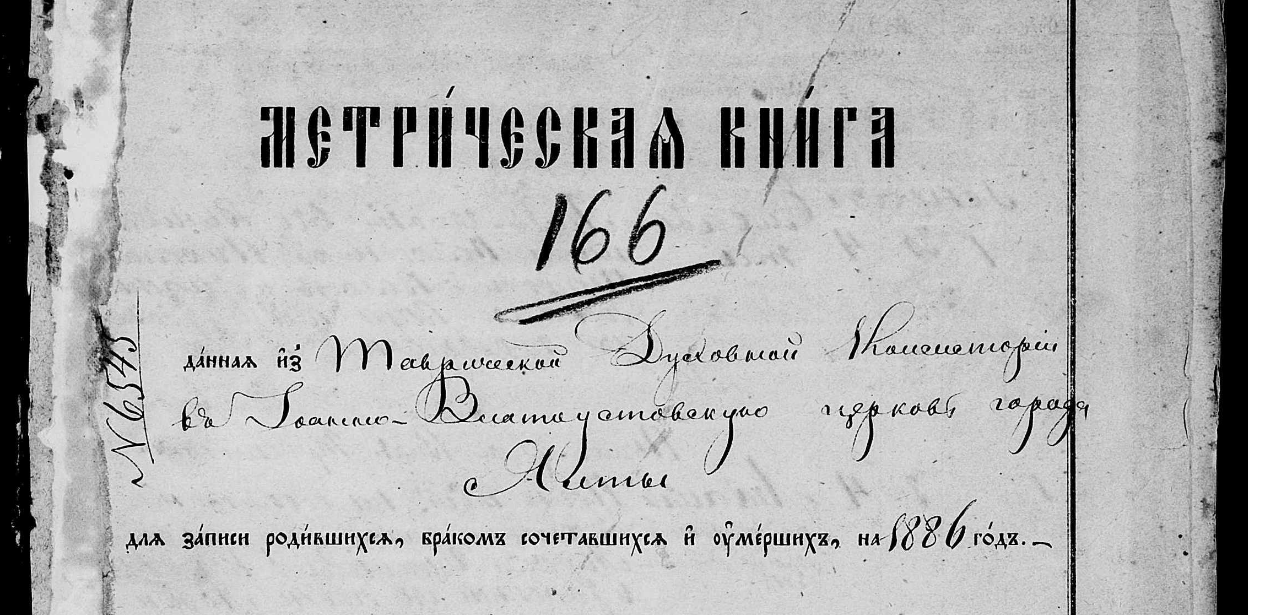 МЕТРИ́ЧЕСКАѦ КНИ́ГА
166
№ 6545
да́нная и҆з̾ Таврической Духовной Консисторіи
въ Іоанно-Златоустовскую церковь города
Ялты
для за́писи роди́вшихся, бра́комъ сочета́вшихся и҆ оу҆ме́ршихъ, на 1886 го́дъ.